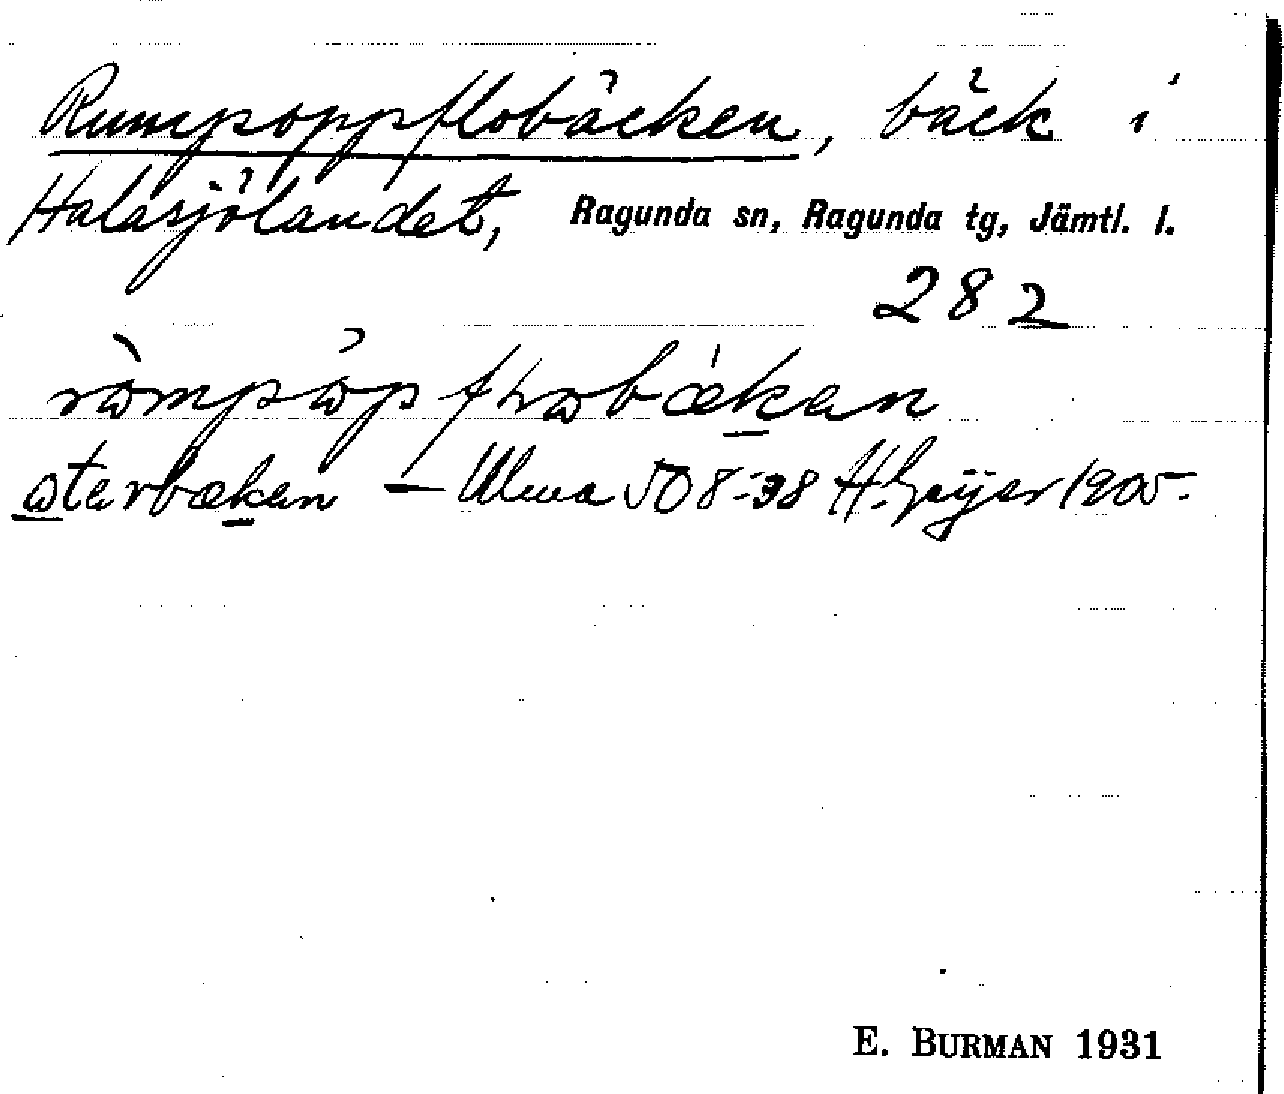 Rumpoppflobäcken, bäck i
Halasjölandet, Ragunda sn, Ragunda tg, Jämtl. l.
282
ròmpòpflωbækan
ωtarbækan – Ulma 508:38 H. Geijer 1905.
E. BURMAN 1931